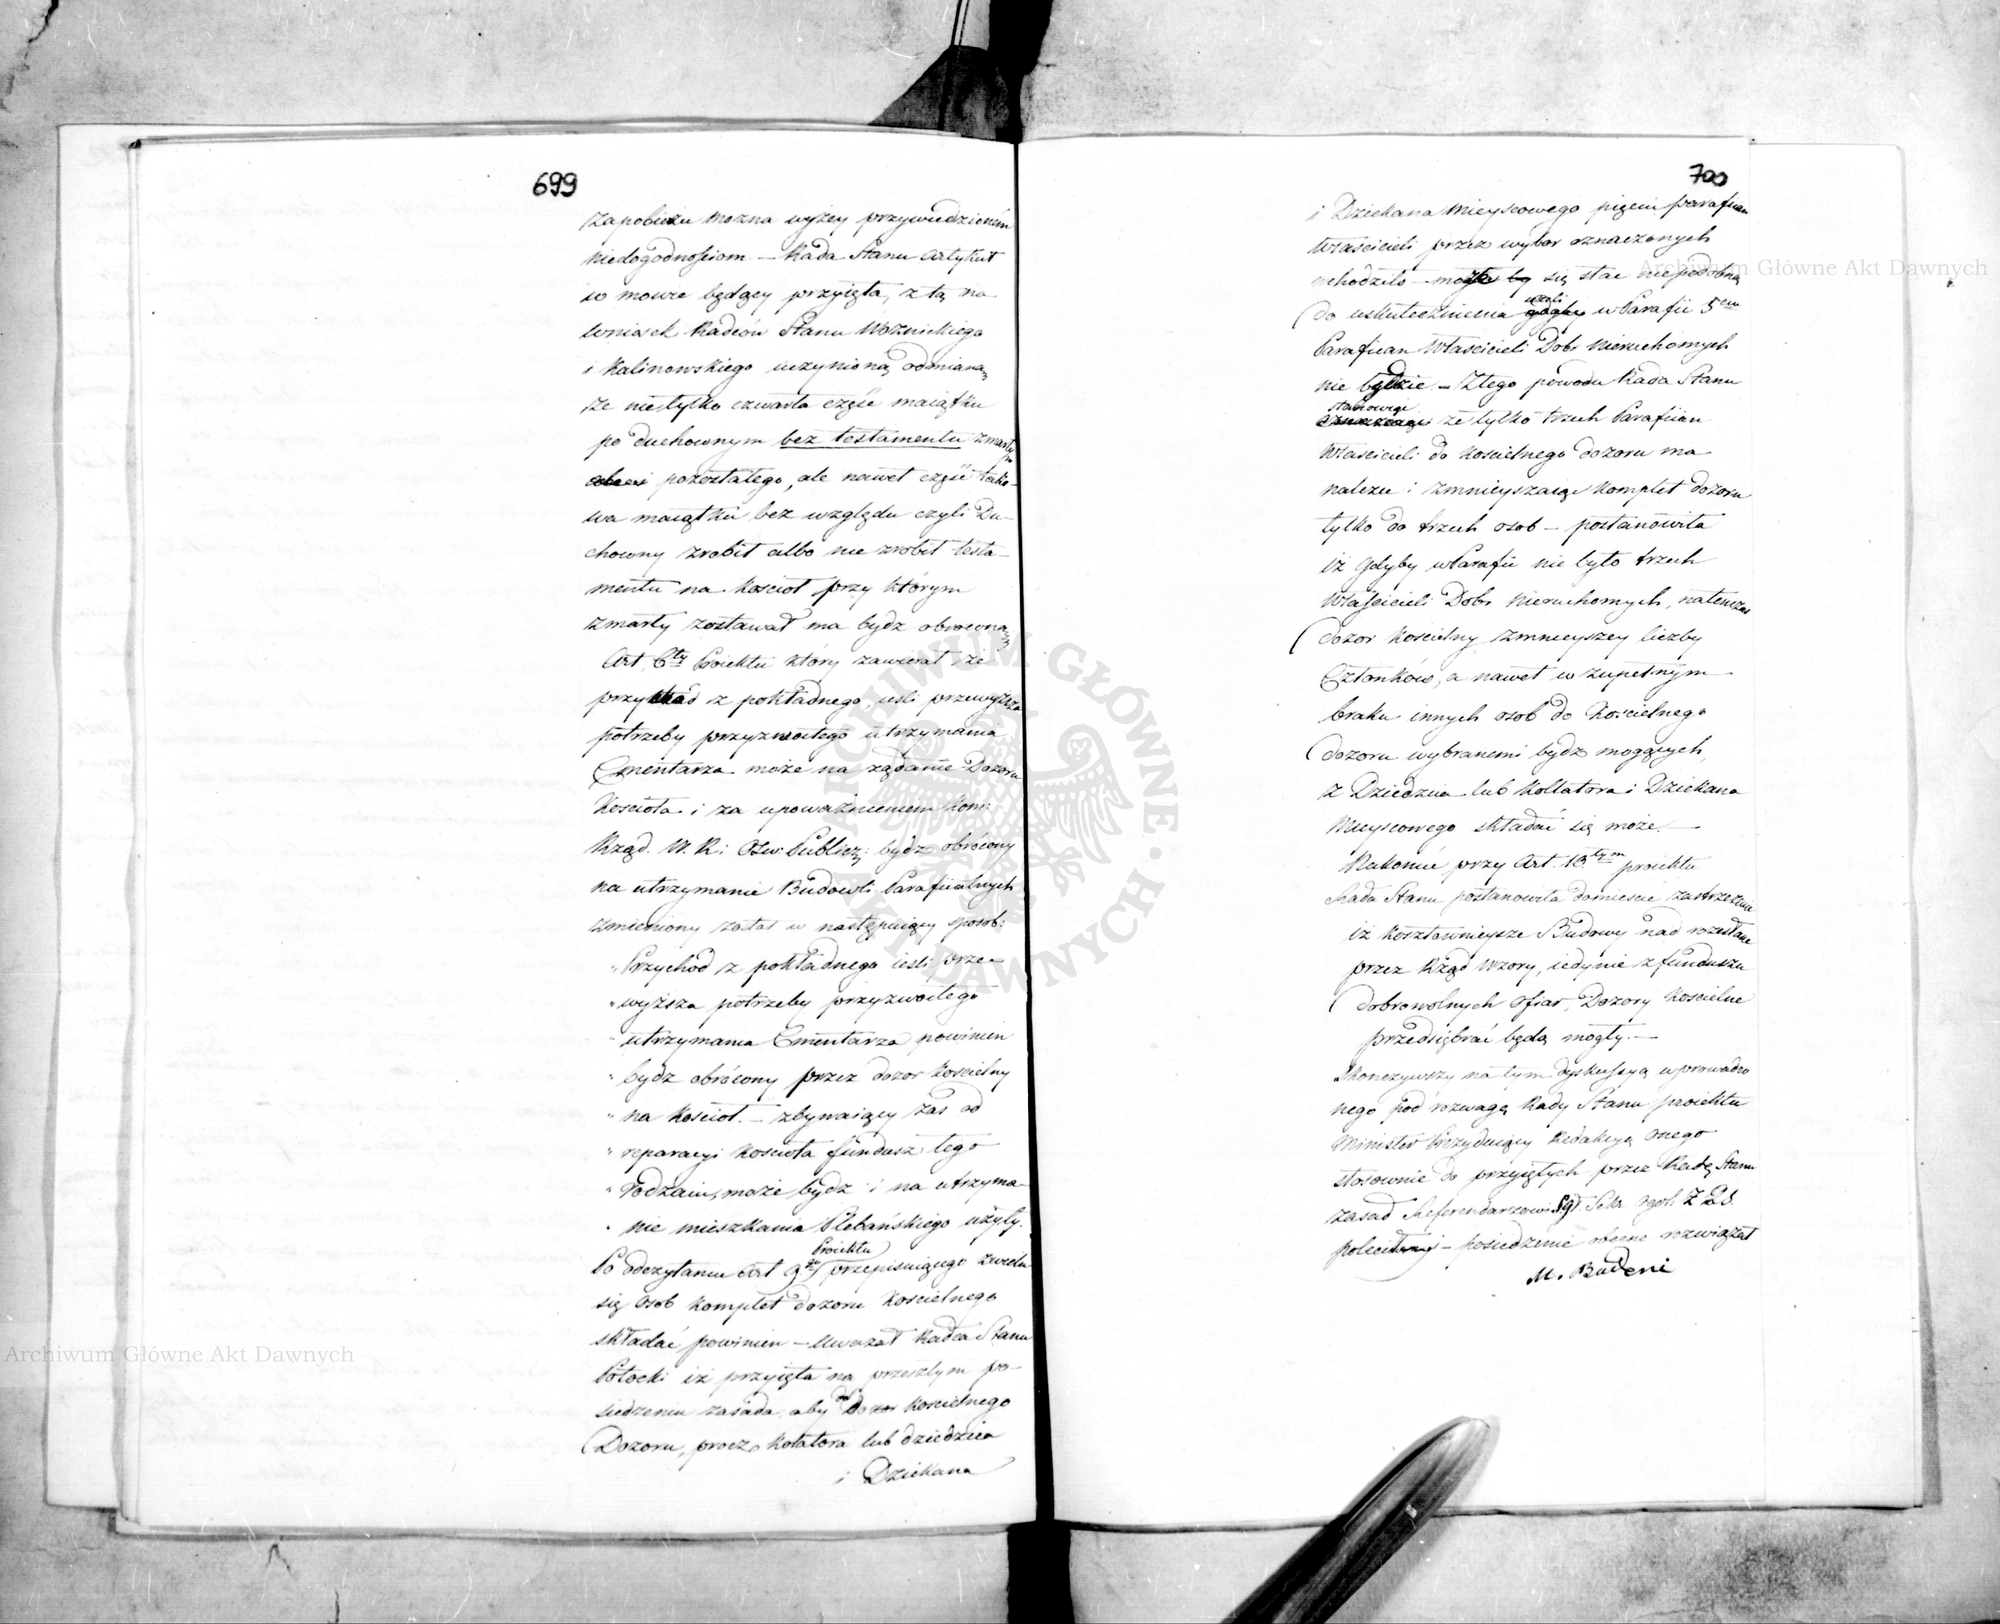 699
zapobieżu można wyżey przywiedzioném
niedogodnościom. — Rada Stanu Artykuł
w mowie będący przyięła, z tą na
wniosek Radców Stanu Woznickiego
i Kalinowskiego uczynioną odmianą,
że nietylko czwarta część maiątku
po duchownym bez testamentu zmarłym
pozostałego, ale nawet część tako-
wa maiątku bez względu czyli Du-
chowny zrobił albo nie zrobił testa-
mentu na kościoł przy którym
zmarły zostawał ma bydz obrócona
Art. 6ty Proiektu który zawierał że
przychód z pokładnego, iesli przewyższa
potrzeby przyzwoitego utrzymania
Cmentarza może na żądanie Dozoru
Kościoła i za upoważnieniem Kom:
Rząd. W. R: Ośw: Publicz: bydz obrócony
na utrzymanie Budowli Parafiialnych
zmieniony został w następuiący sposób:
„Przychod z pokładnego iesli prze-
„wyższa potrzeby przyzwoitego
„utrzymania Cmentarza powinien
„bydz obrócony przez dozor kościelny
„na kościoł. — zbywaiący zaś od
„reparacyi kościoła fundusz tego
„rodzaiu, może bydz i na utrzyma-
„nie mieszkania Plebańskiego użyty.
Proiektu
Po odczytaniu Art 9go przepisuiącego z wielu
się osob komplet dozoru kościelnego
składać powinien — uważał Radca Stanu
Potocki iż przyięta na przeszłym po-
siedzeniu zasada, aby do kościelnego
Dozoru, procz kolatora lub dziedzica
i Dziekana
700
i Dziekana mieyscowego pięciu parafian
właścicieli przez wybor oznaczonych
wchodziło — może się stać niepodobną
do uskutecznienia ieżeli w Parafii 5ciu
Parafiian Właścicieli Dobr nieruchomych
nie będzie. — Z tego powodu Rada Stanu
stanowiąc
że tylko trzech Parafiian
Właścicieli do kościelnego dozoru ma
należeć i zmnieyszaiąc komplet dozoru
tylko do trzech osob — postanowiła
iż gdyby w Parafii nie było trzech
Właścicieli Dobr nieruchomych, natenczas
dozor kościelny z mnieyszey liczby
Członków, a nawet w zupełnym
braku innych osob do kościelnego
dozoru wybranemi bydz mogących,
z Dziedzica lub kollatora i Dziekana
Mieyscowego składać się może. —
Nakoniec przy Art. 10tym proiektu
Rada Stanu postanowiła domieścić zastrzeżenie
iż kosztownieysze Budowy nad rozesłane
przez Rząd wzory, iedynie z funduszu
dobrowolnych ofiar, Dozory kościelne
przedsiębrać będą mogły. —
Skończywszy na tym dyskussyą wprowadzo
nego pod rozwagę Rady Stanu proiektu
Minister Prezyduiący Redakcyą onego
stosownie do przyiętych przez Radę Stanu
zasad Referendarzowi
polecił — posiedzenie obecne rozwiązał
M. Badeni
Archiwum Główne Akt Dawnych
Archiwum Główne Akt Dawnych
ARCHIWUM GŁÓWNE AKT DAWNYCH